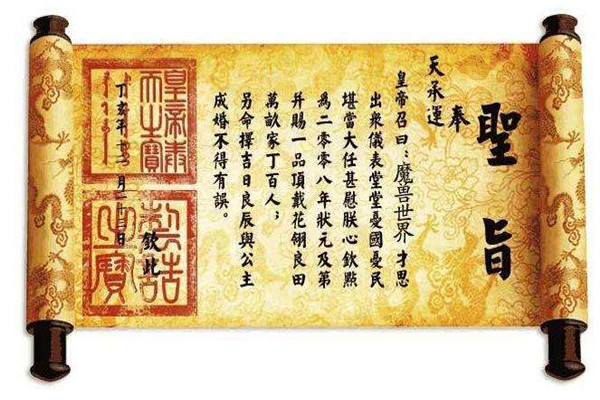 聖旨
奉
天承運
皇帝召曰：魔兽世界才思
出衆儀表堂堂憂國憂民
堪當大任甚慰朕心欽點
為二零零八年狀元及第
并賜一品頂戴花翎良田
萬畝家丁百人；
另命擇吉日良辰與公主
成婚不得有誤。
欽此
皇帝奉天之寶
制誥之寶